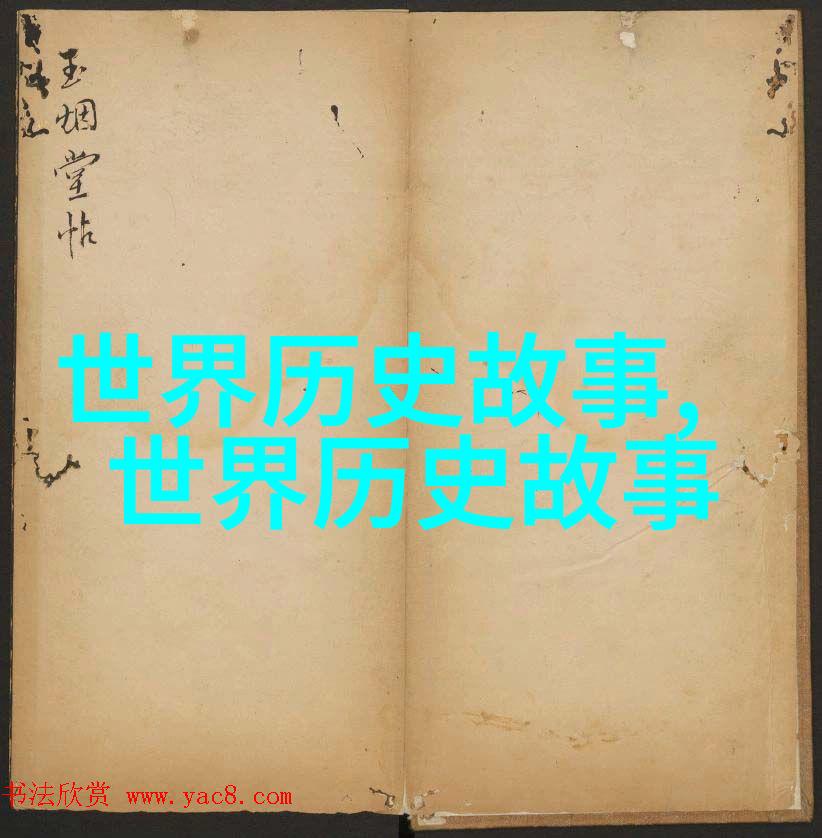 玉烟堂帖
世界历史故事,
世界历史故事
书法欣赏 www.yac8.com